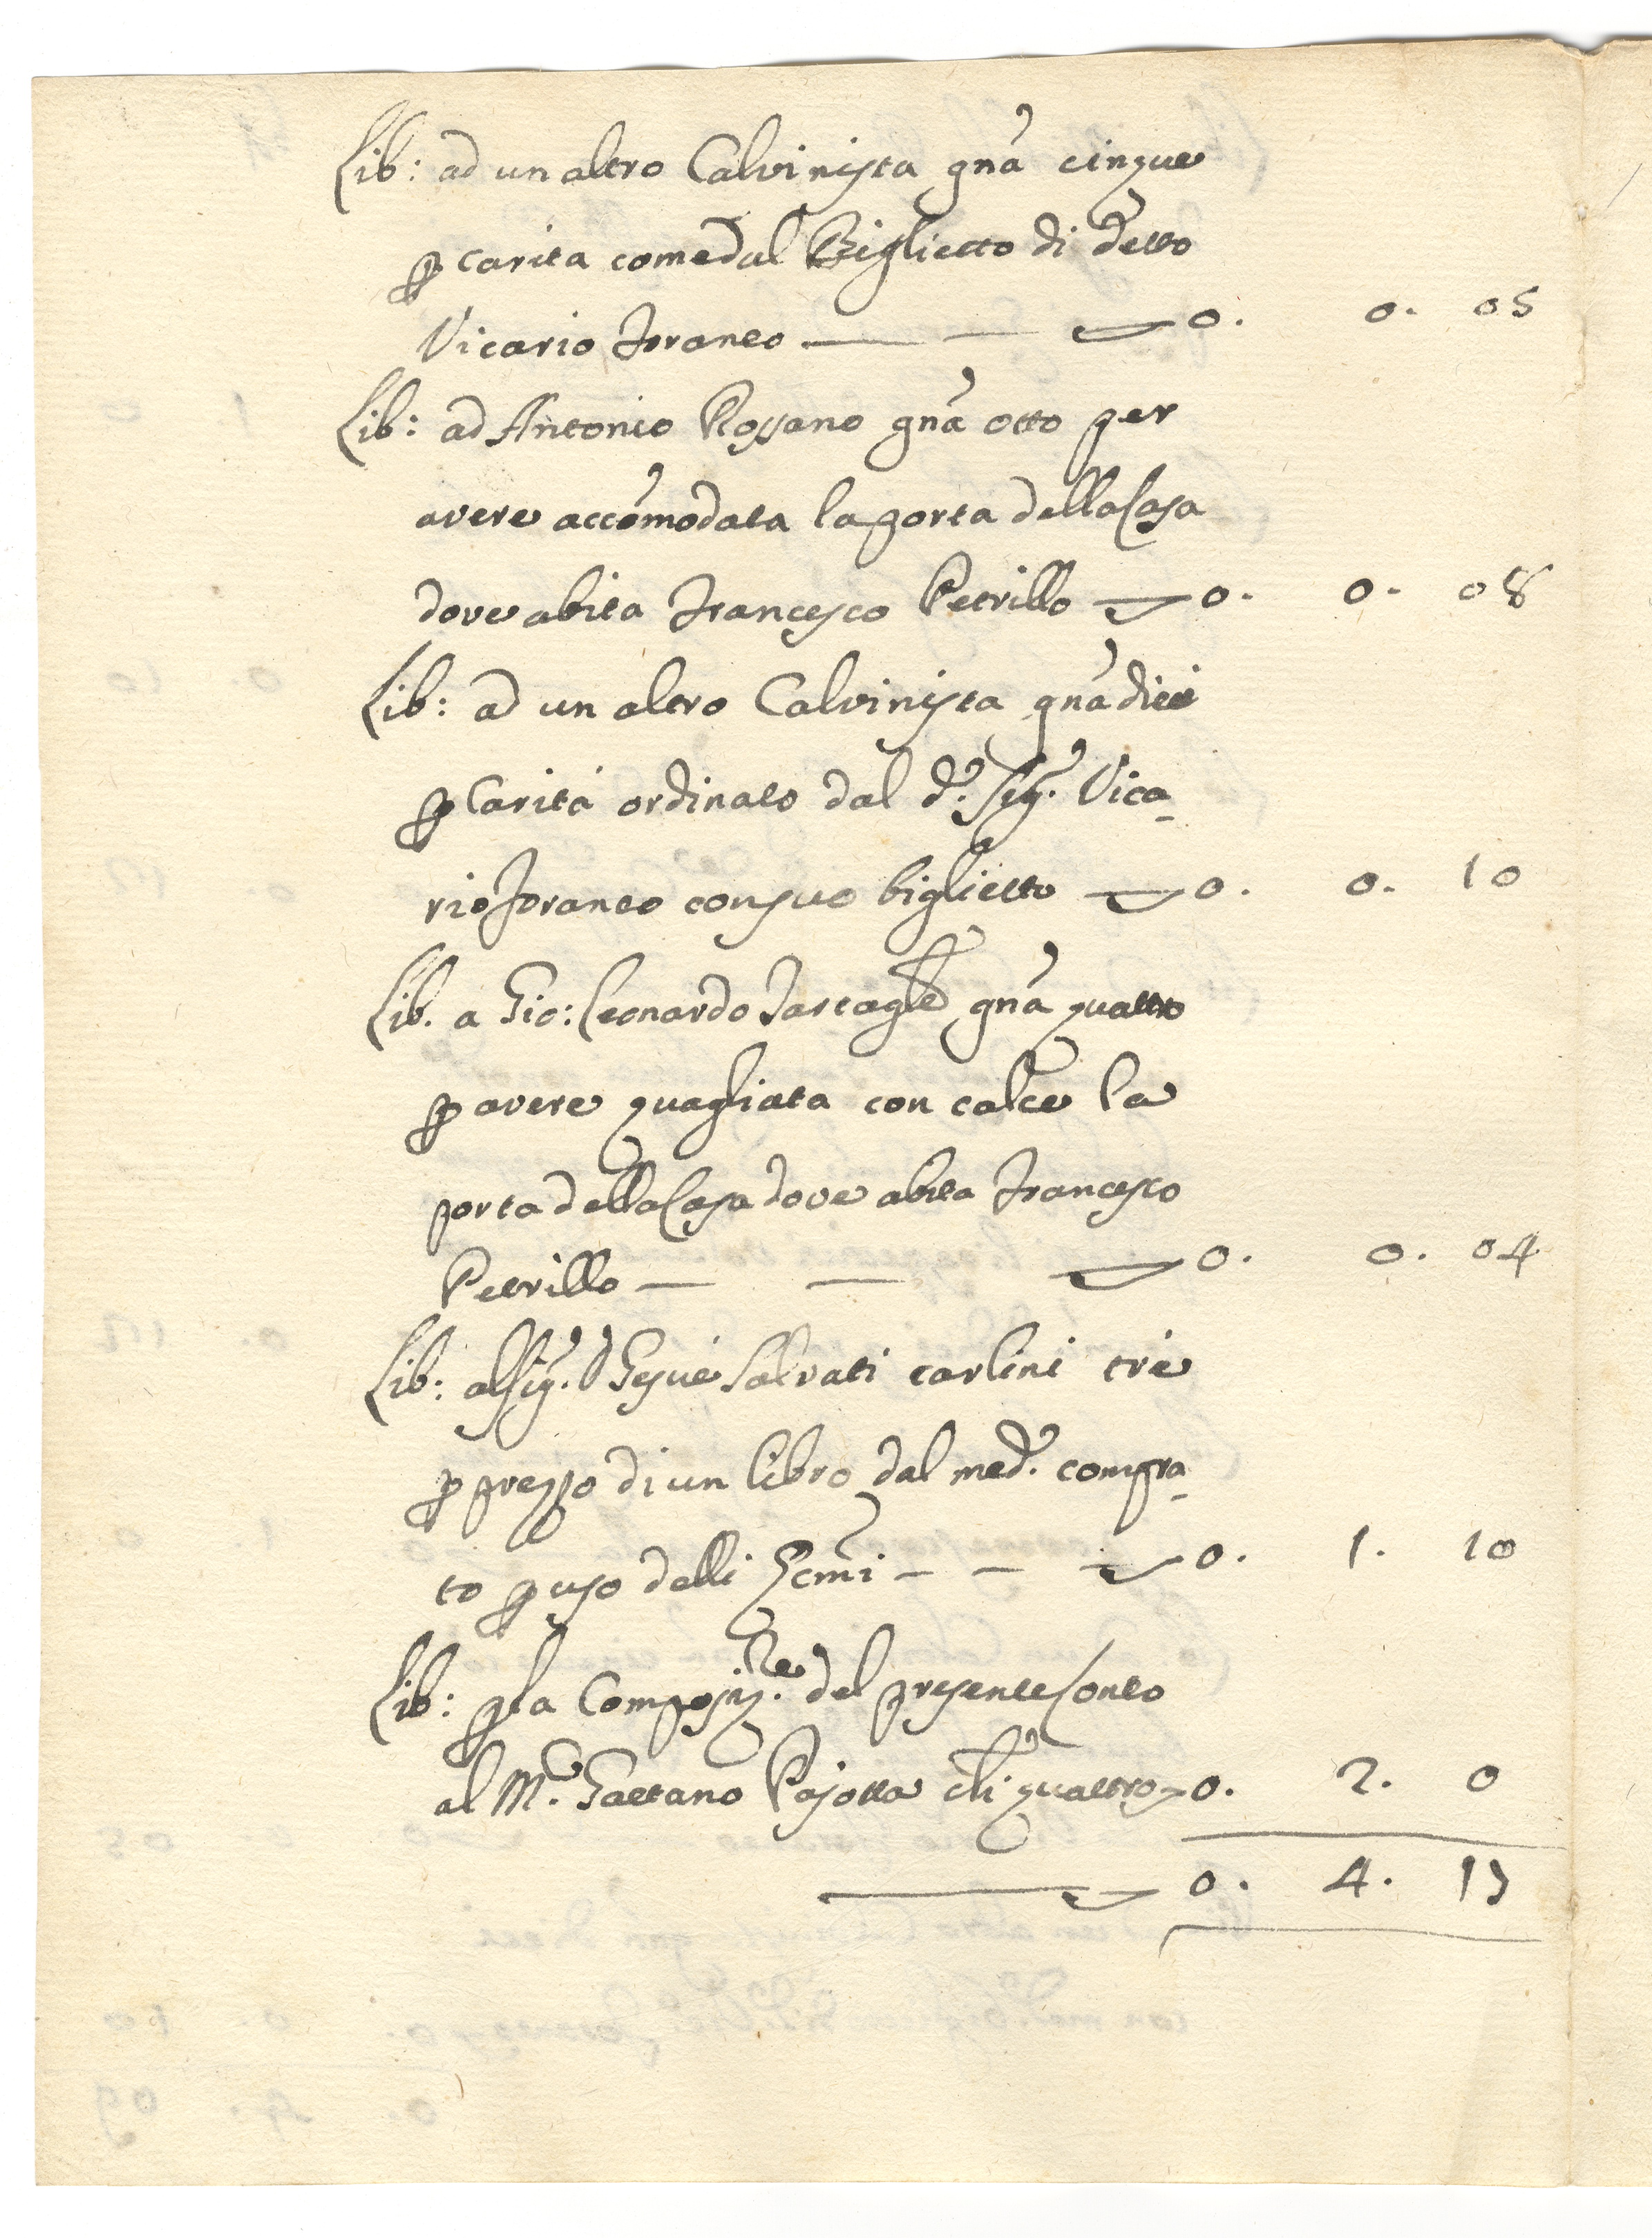 Lib: ad un altro Calvinista gnã cinque
p carita come dal Biglietto di detto
Vicario foraneo — — 0. 0. 05
Lib: ad Antonio Rossano gnã otto per
avere accõmodata la porta della Casa
dove abita Francesco Petrillo — 0. 0. 08
Lib: ad un altro Calvinista gnã dieci
p Carità ordinato dal d.º Sig.r Vica-
rio foraneo con suo biglietto — 0. 0. 10
Lib. a Gio: Leonardo gnã quattro
p avere quagliata con calce la
porta della Casa dove abita Francesco
Petrillo — — 0. 0. 04
Lib: al Sig.r D Gesuè Salvati carlini trè
p prezzo di un libro dal med.º compra-
to p uso delli — — 0. 1. 10
Lib: p la Composiz.ne del presente Conto
al M.co Gaetano Pajotta cli quattro 0. 2. 0
— 0. 4. 17